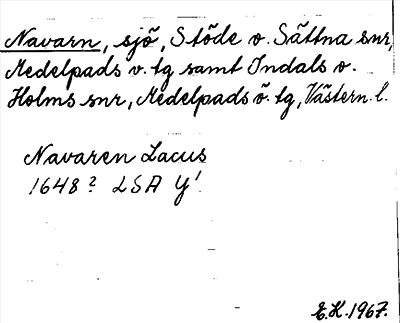 Navarn, sjö, Stöde o. Sättna snr,
Medelpads v. tg samt Indals o.
Holms snr, Medelpads ö. tg, Västern. l.
Navaren Lacus
1648? LSA Y¹
E.H. 1967.